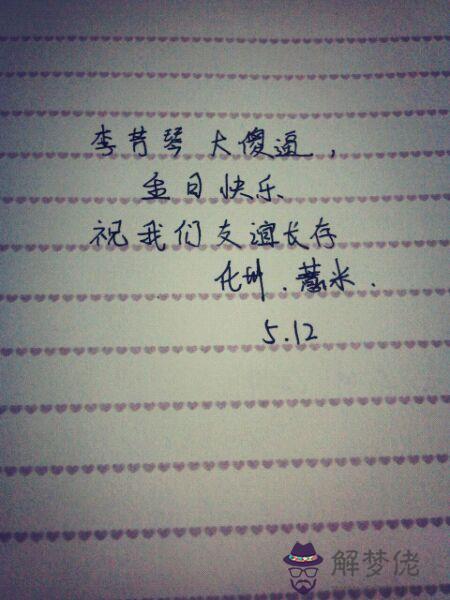 李芳琴 大傻逼，
生日快乐
祝我们友谊长存
化州.薏米.
5.12
解梦佬